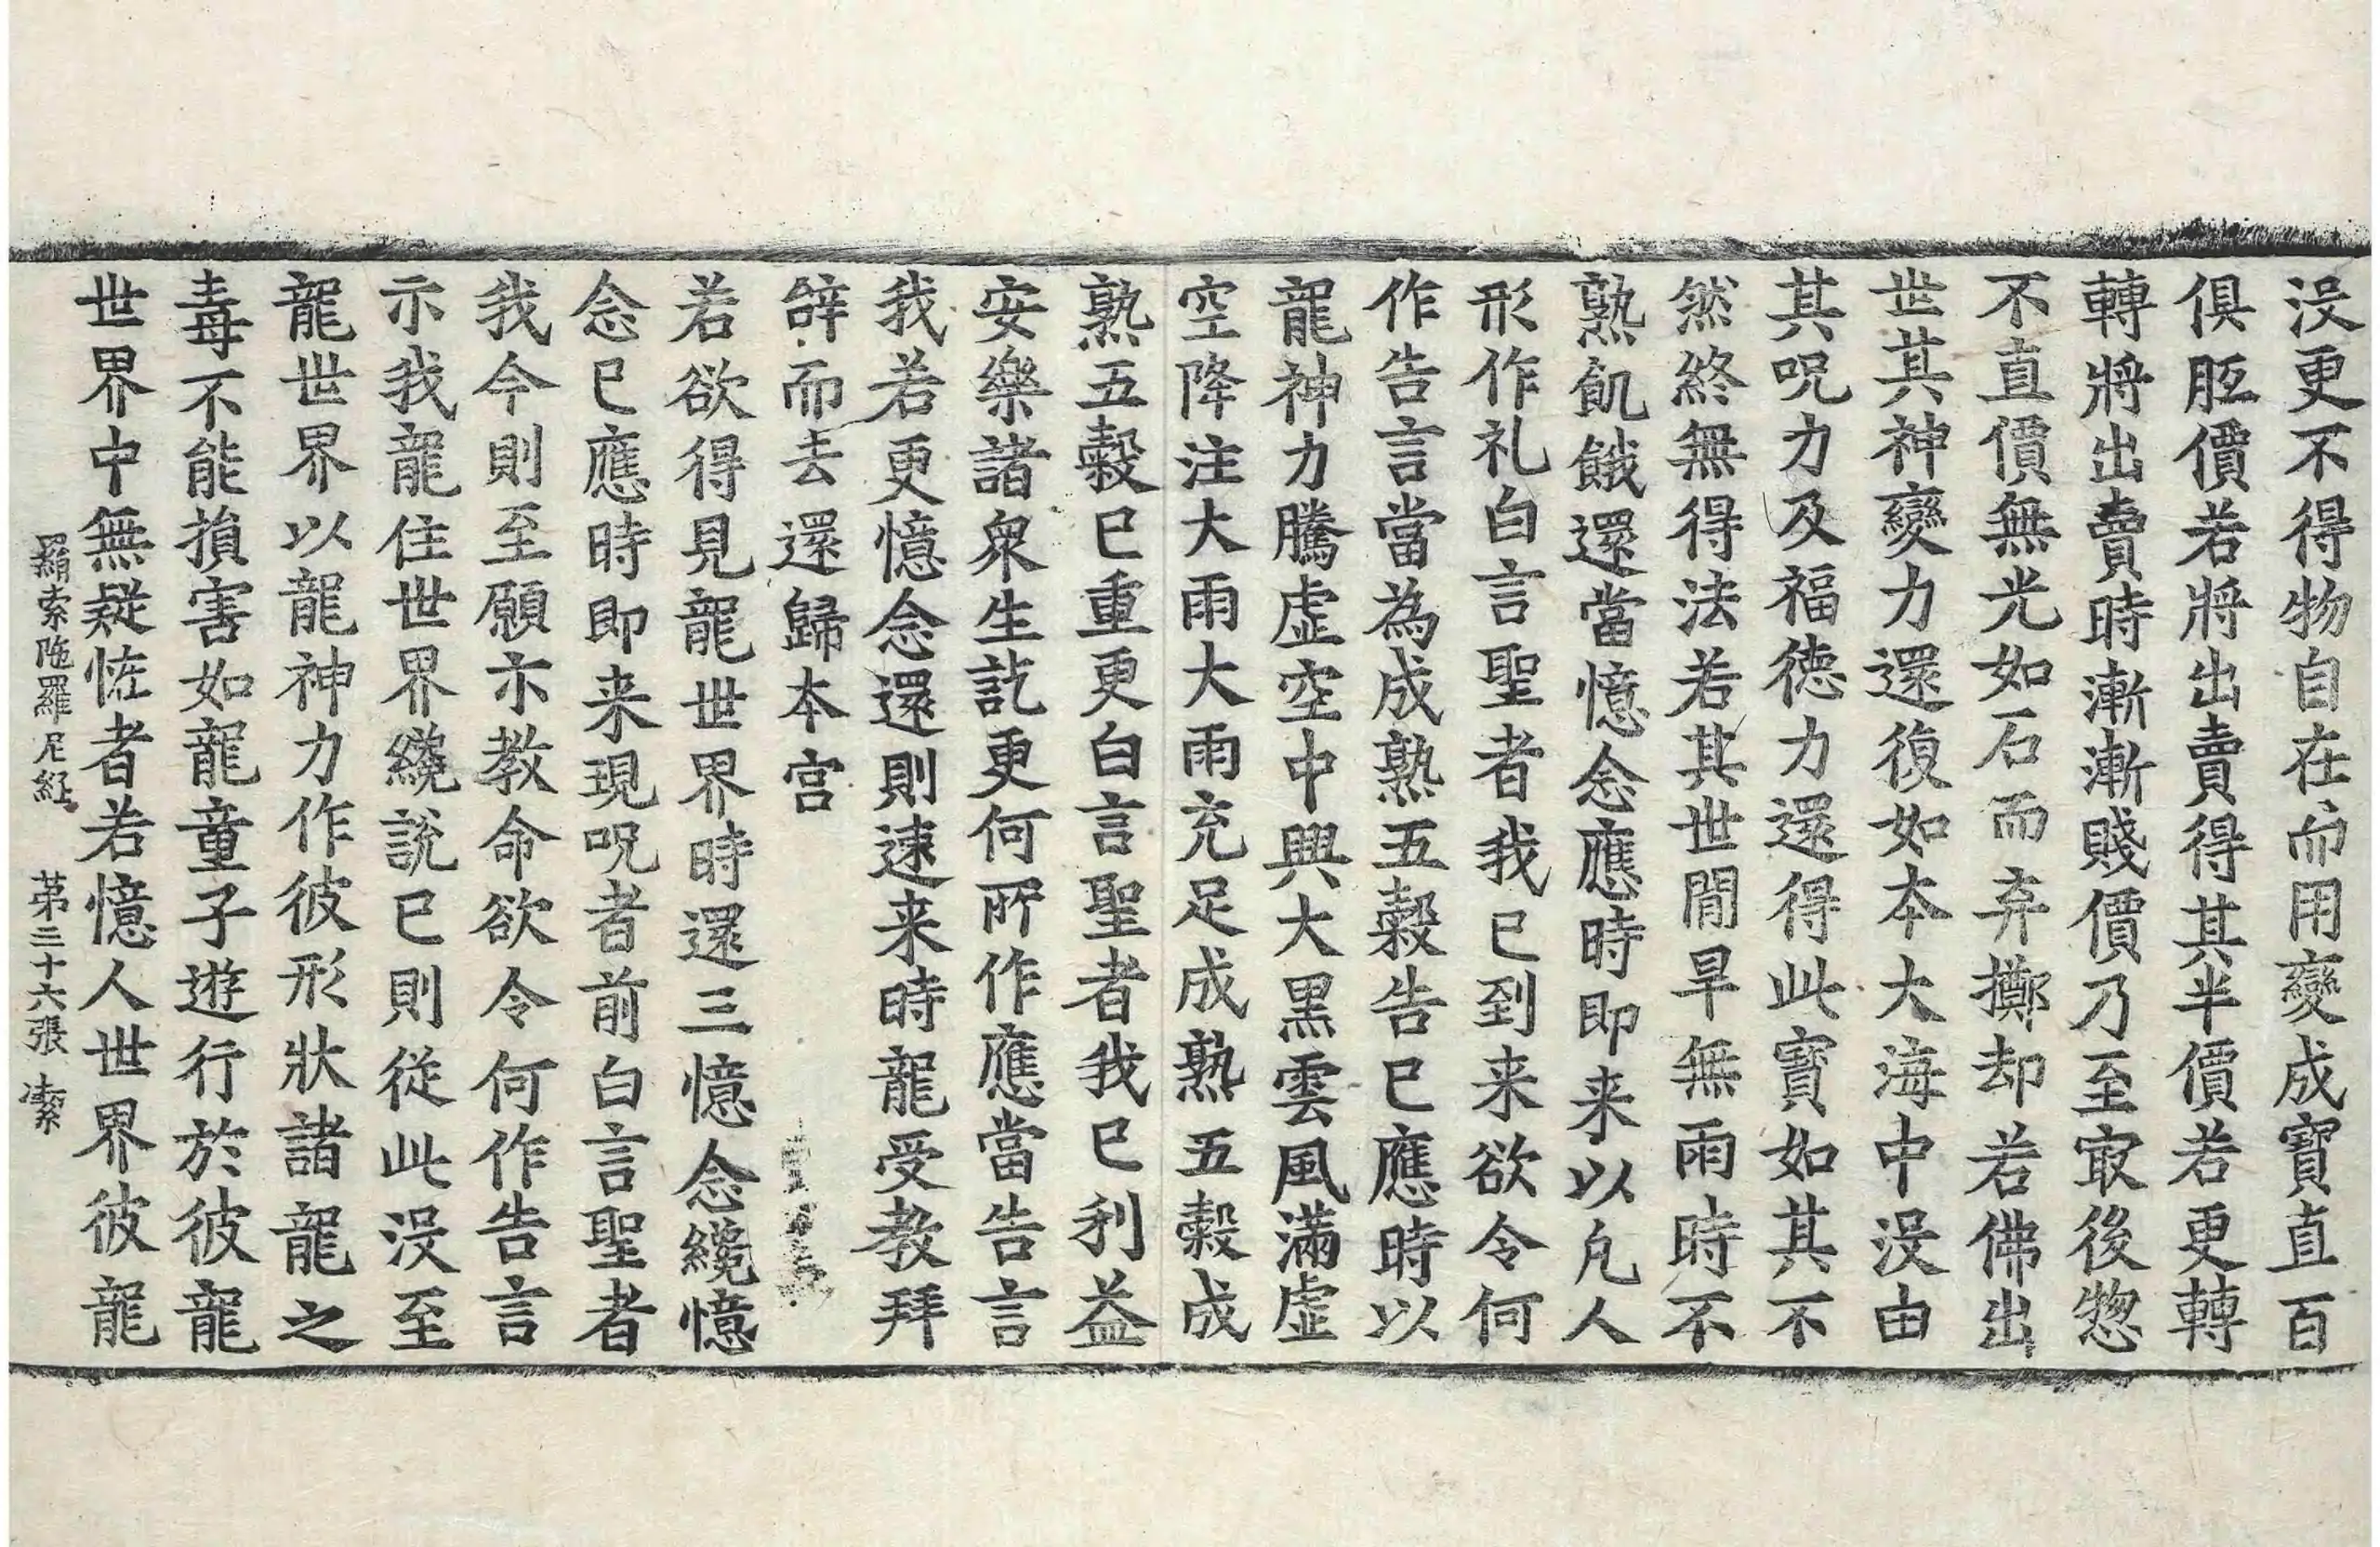 没更不得物自在而用變成寶直百
俱胝價若將出賣得其半價若更轉
轉將出賣時漸漸賤價乃至㝡後惣
不直價無光如石而弃擲却若佛出
世其神變力還復如本大海中没由
其呪力及福徳力還得此寶如其不
然終無得法若其世間旱無雨時不
熟飢餓還當憶念應時即来以凢人
形作礼白言聖者我已到来欲令何
作告言當為成熟五穀告已應時以
龍神力騰虚空中興大黒雲風滿虚
空降注大雨大雨充足成熟五穀成
熟五穀已重更白言聖者我已利益
安樂諸衆生訖更何所作應當告言
我若更憶念還則速来時龍受教拜
辞而去還歸本宫
若欲得見龍世界時還三憶念纔憶
念已應時即来現呪者前白言聖者
我今則至願示教命欲令何作告言
示我龍住世界纔説已則從此没至
龍世界以龍神力作彼形狀諸龍之
毒不能損害如龍童子遊行於彼龍
世界中無疑恠者若憶人世界彼龍
羂索陁羅尼經 苐三十六張 潔